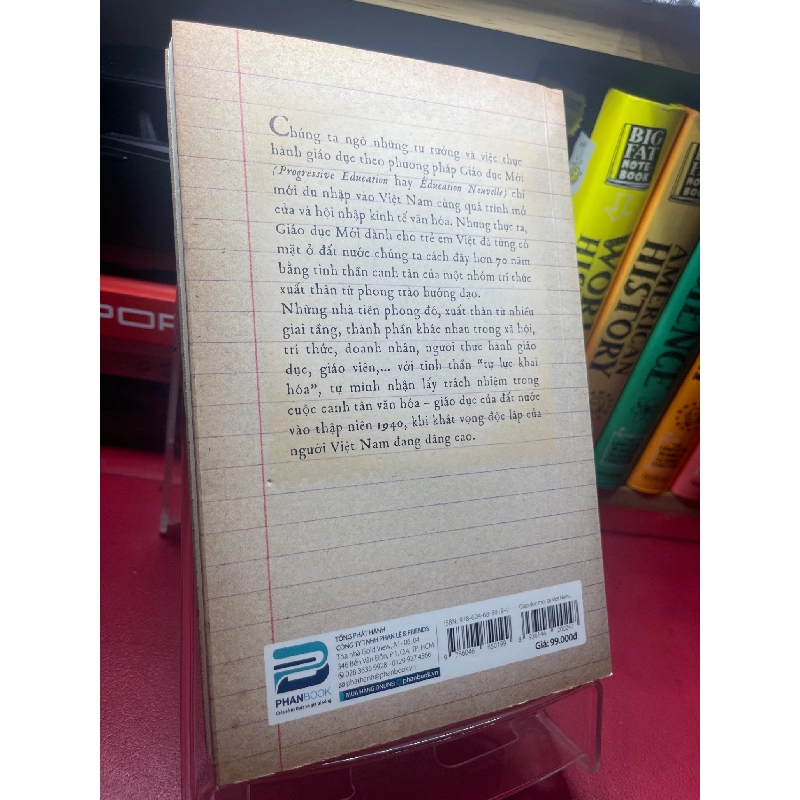 Chúng ta ngỡ những tư tưởng và việc thực
hành giáo dục theo phương pháp Giáo dục Mới
(Progressive Education hay Éducation Nouvelle) chỉ
mới du nhập vào Việt Nam cùng quá trình mở
cửa và hội nhập kinh tế văn hóa. Nhưng thực ra,
Giáo dục Mới dành cho trẻ em Việt đã từng có
mặt ở đất nước chúng ta cách đây hơn 70 năm
bằng tinh thần canh tân của một nhóm trí thức
xuất thân từ phong trào hướng đạo.
Những nhà tiên phong đó, xuất thân từ nhiều
giai tầng, thành phần khác nhau trong xã hội,
trí thức, doanh nhân, người thực hành giáo
dục, giáo viên,... với tinh thần “tự lực khai
hóa”, tự mình nhận lấy trách nhiệm trong
cuộc canh tân văn hóa – giáo dục của đất nước
vào thập niên 1940, khi khát vọng độc lập của
người Việt Nam đang dâng cao.
PHANBOOK
TỔNG PHÁT HÀNH
CÔNG TY TNHH PHAN LÊ & FRIENDS
Tòa nhà Gold View, A1-06.04
346 Bến Vân Đồn, P.1, Q.4, TP. HCM
MUA HÀNG ONLINE: phanbook.vn
Giáo dục mới tại Việt Nam...
Giá: 99.000đ
BIG
FAT
NOTE
BOOK
WORLD
HISTORY
AMERICAN
HISTORY
SCIENCE